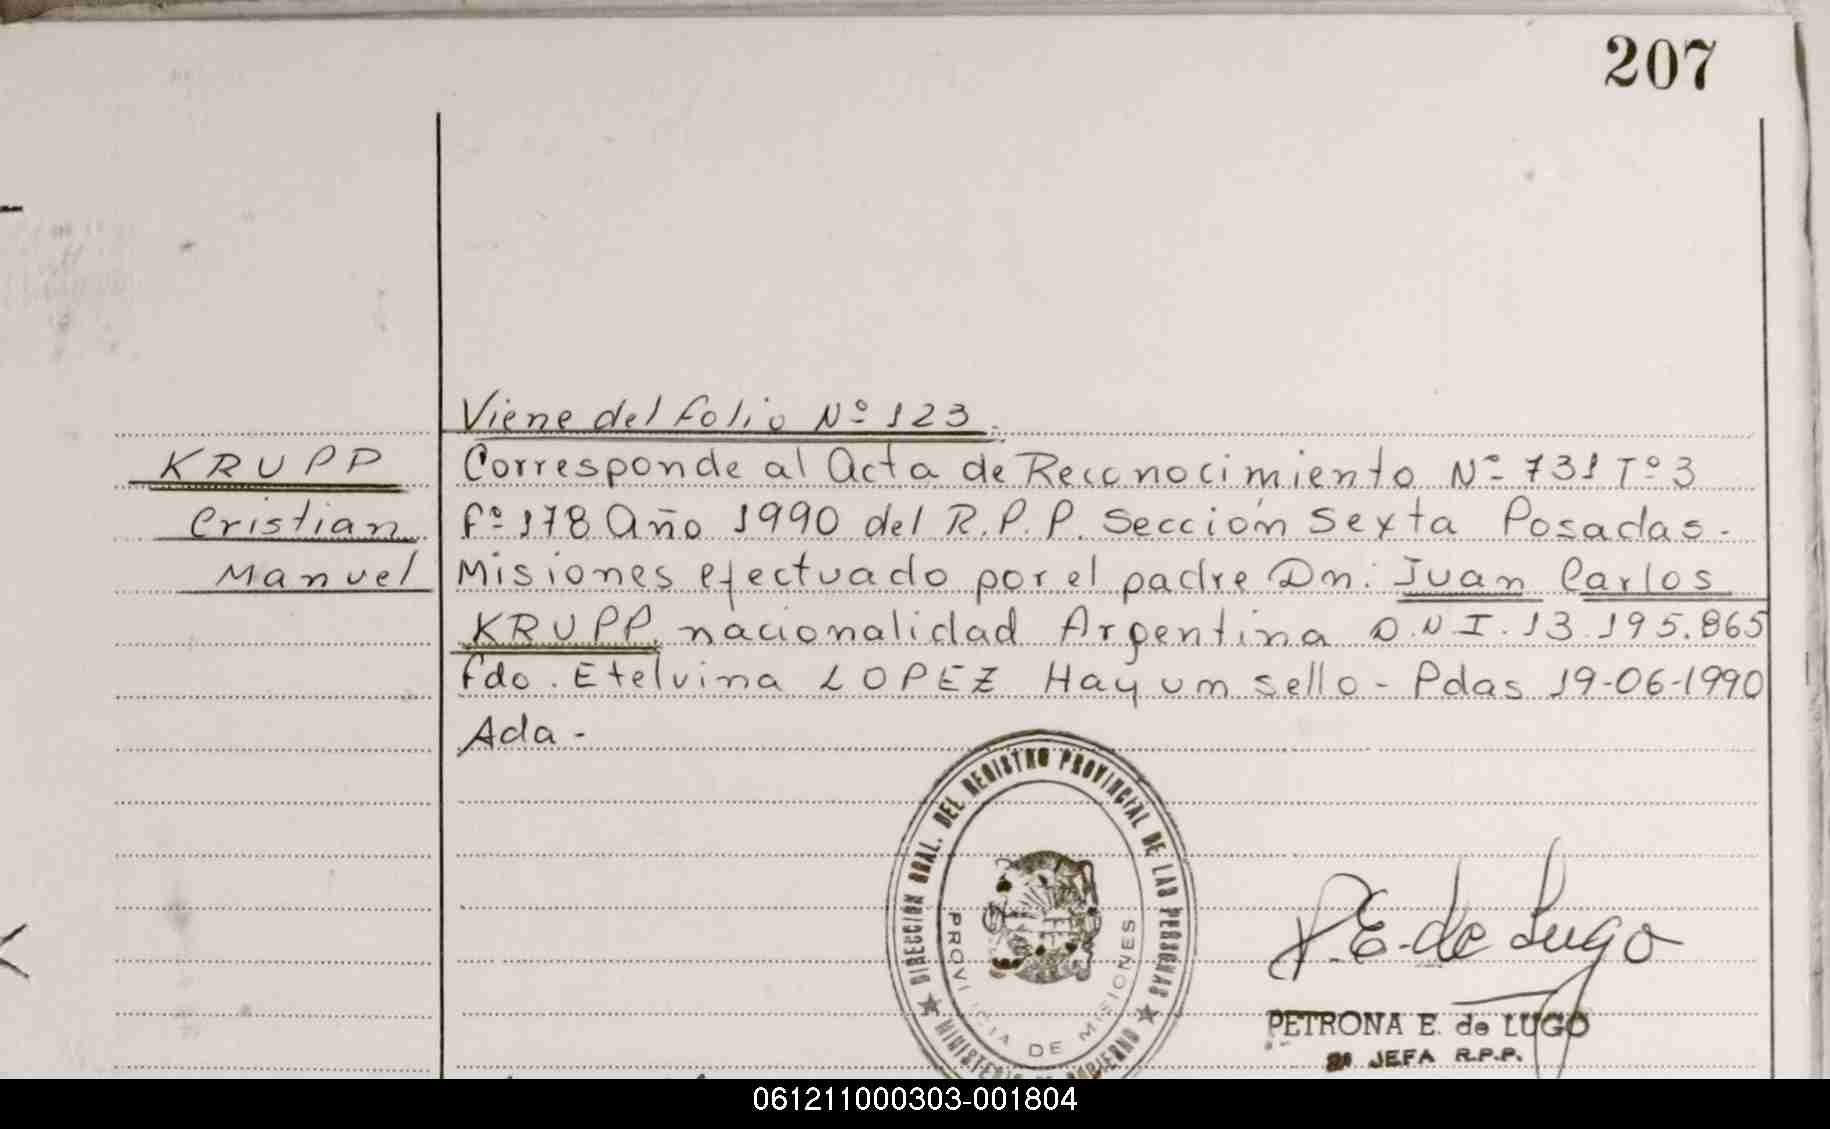 207
Viene del folio Nº 123.
KRUPP
Corresponde al Acta de Reconocimiento Nº 731 Tº 3
Cristian
fº 178 Año 1990 del R.P.P. Sección Sexta Posadas.-
Manuel
Misiones efectuado por el padre Dn: Juan Carlos
KRUPP, nacionalidad Argentina D.N.I. 13.195.865
fdo. Etelvina LOPEZ Hay un sello - Pdas 19-06-1990
Ada -
DIRECCIÓN GRAL. DEL REGISTRO PROVINCIAL DE LAS PERSONAS
PROVINCIA DE MISIONES
MINISTERIO DE GOBIERNO
P.E. de Lugo
PETRONA E. de LUGO
JEFA R.P.P.
061211000303-001804